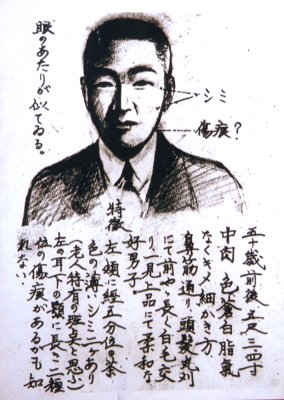 眼のあたりが似てゐる。
シミ
傷痕?
五十歳前後 五尺三四寸
中肉 色蒼白 脂氣
なくキメ細かき方、
鼻筋通り 頭髪 刈
にて前やゝ長く白毛交
り一見上品にて柔和な
好男子。
特徴
左頬に経五分位の茶
色の薄いシミ二ケあり
(老人特有の斑点と思ふ)
左の耳下の顎に長さ二糎
位の傷痕があるかも知
れない。